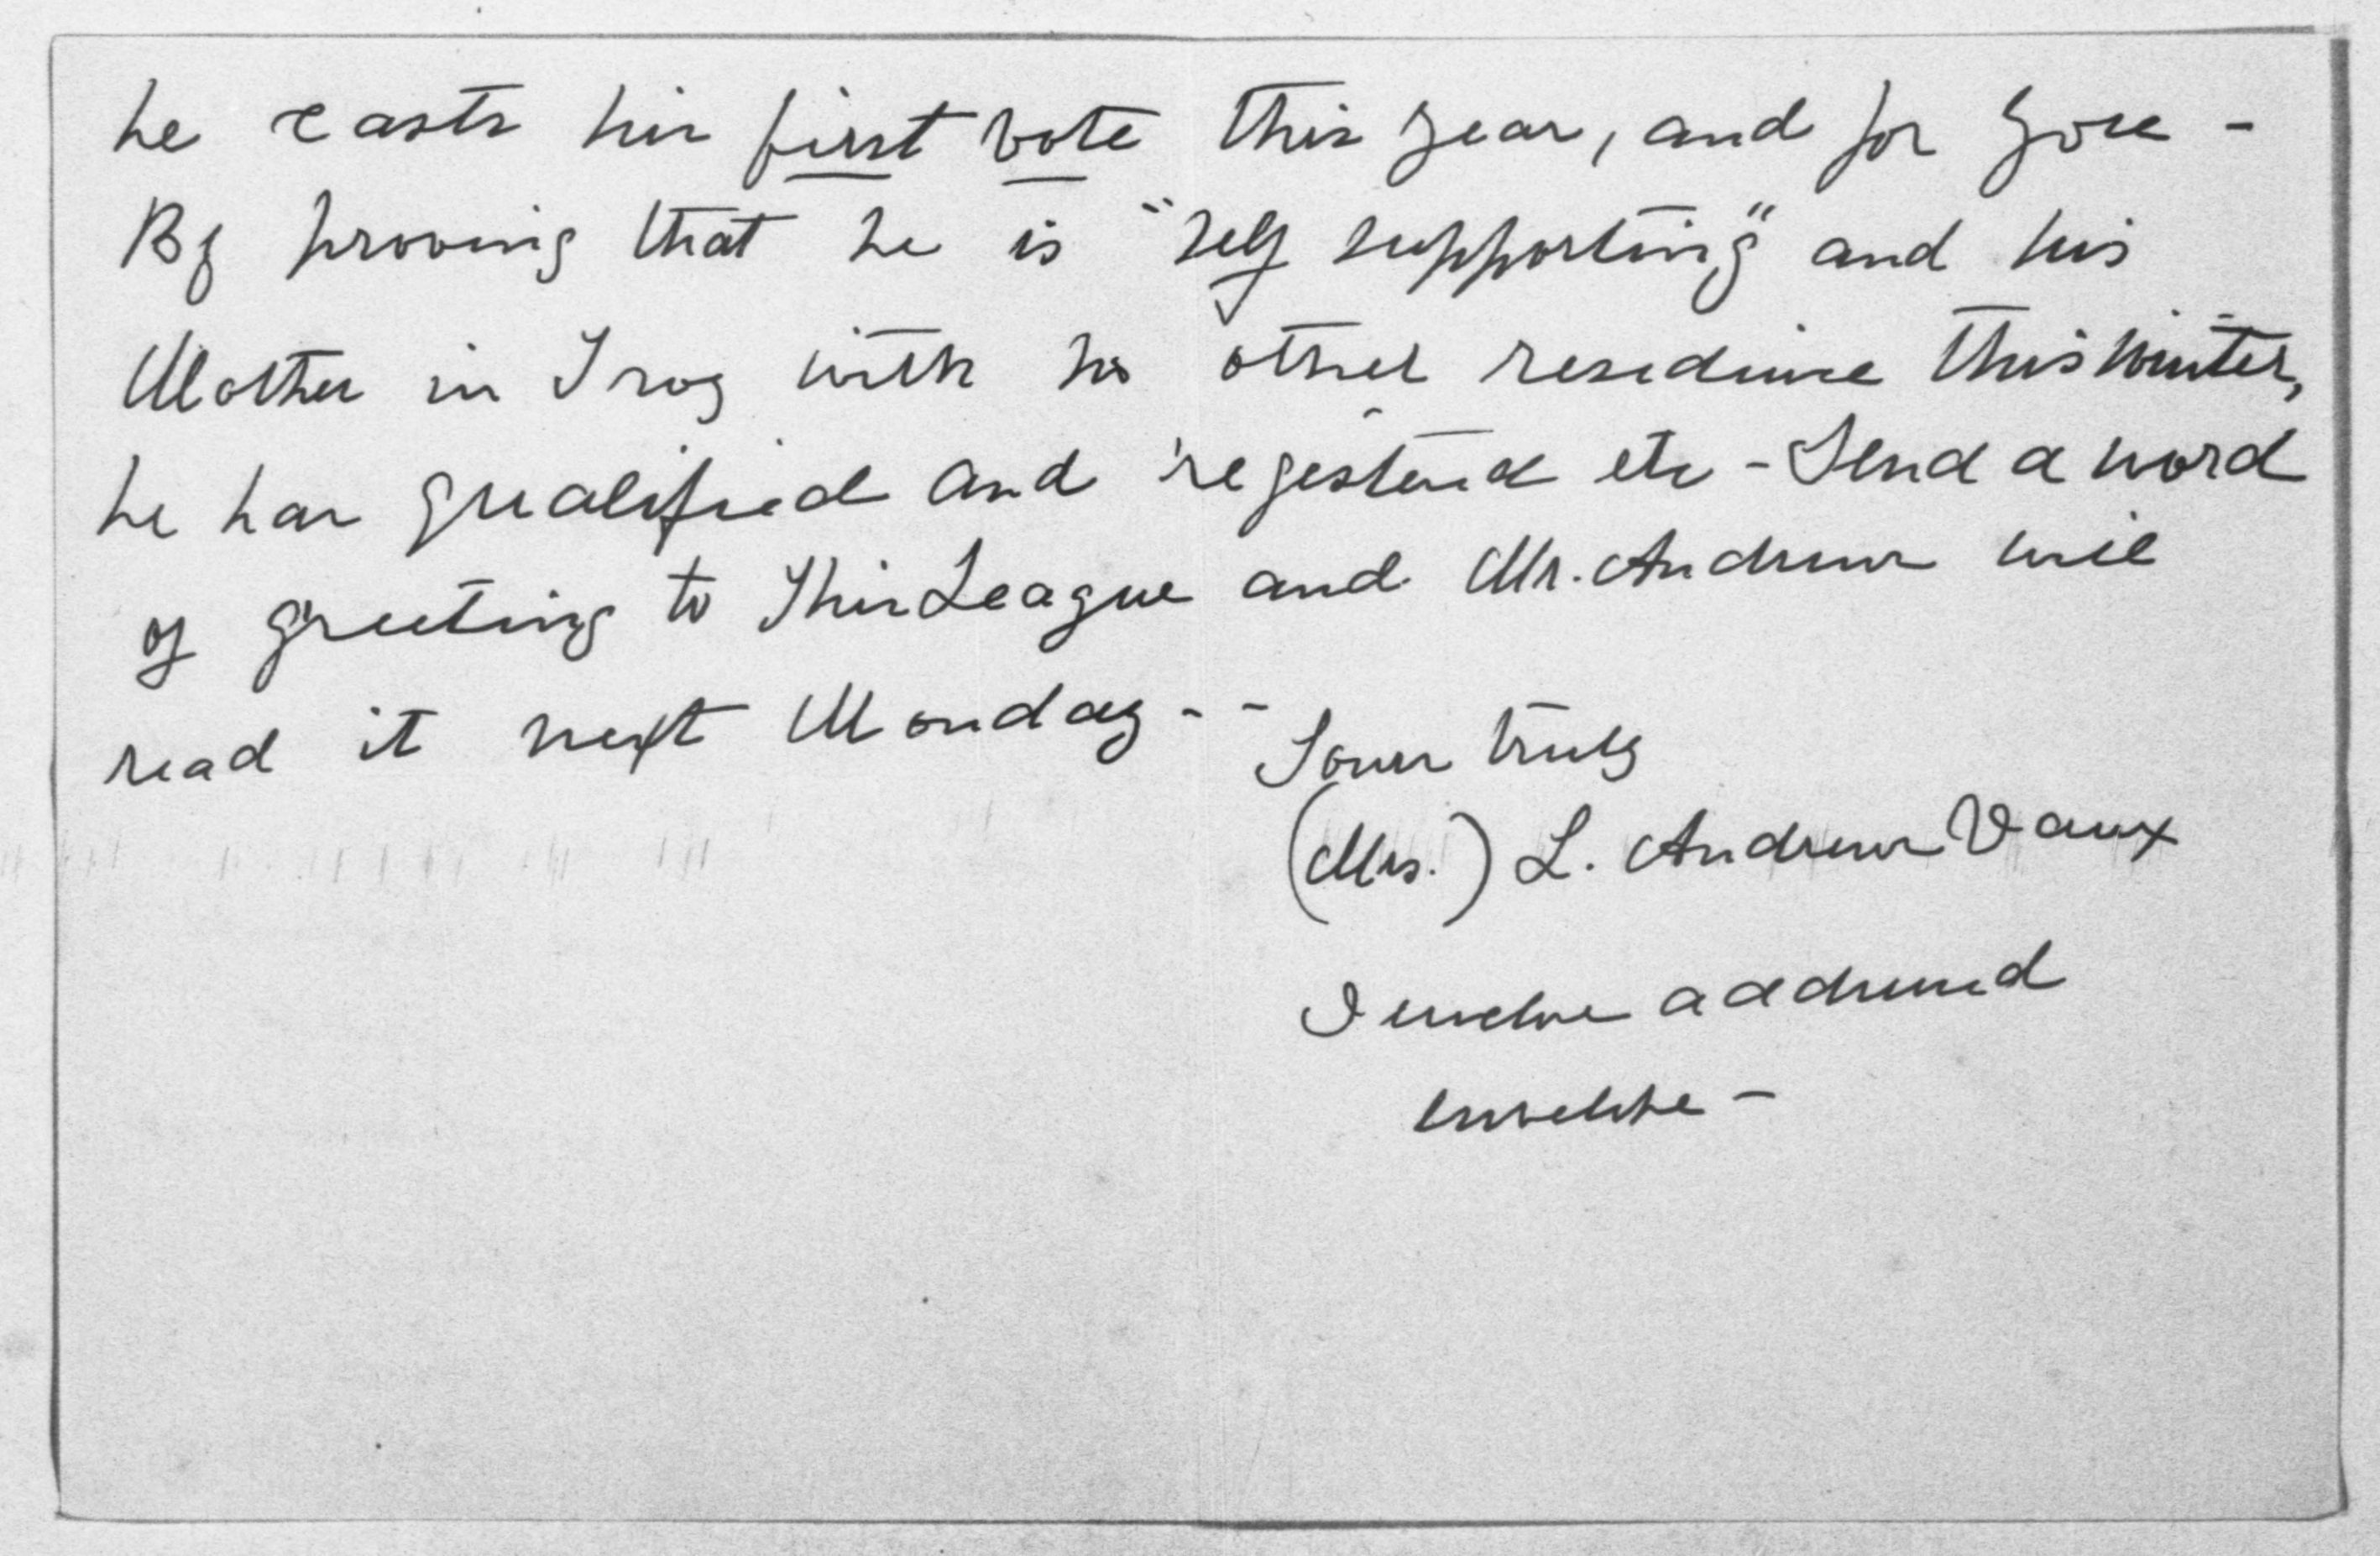 he casts his first vote this year, and for you -
By prooving that he is "self supporting" and his
Mother in Troy with no other residence this winter,
he has qualified and regestered etc - Send a word
of greeting to this League and Mr. Andrews will
read it next Monday - -
Yours truly
(Mrs.) L. Andrews Vaux
I enclose addressed
envelope -